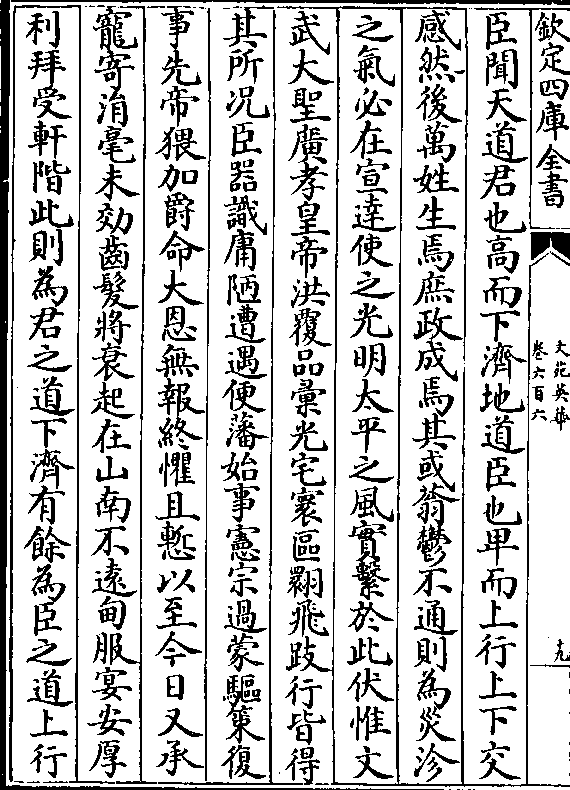 欽定四庫全書
文苑英華
卷六百六
九
臣聞天道君也高而下濟地道臣也卑而上行上下交
感然後萬姓生焉庶政成焉其或翁鬱不通則為災沴
之氣必在宣達使之光明太平之風實繫於此伏惟文
武大聖廣孝皇帝洪覆品彚光宅寰區翾飛跂行皆得
其所况臣器識庸陋遭遇便藩始事憲宗過蒙驅策復
事先帝猥加爵命大恩無報終懼且慙以至今日又承
寵寄涓毫未効齒髮將衰起在山南不遠甸服宴安厚
利拜受軒階此則為君之道下濟有餘為臣之道上行